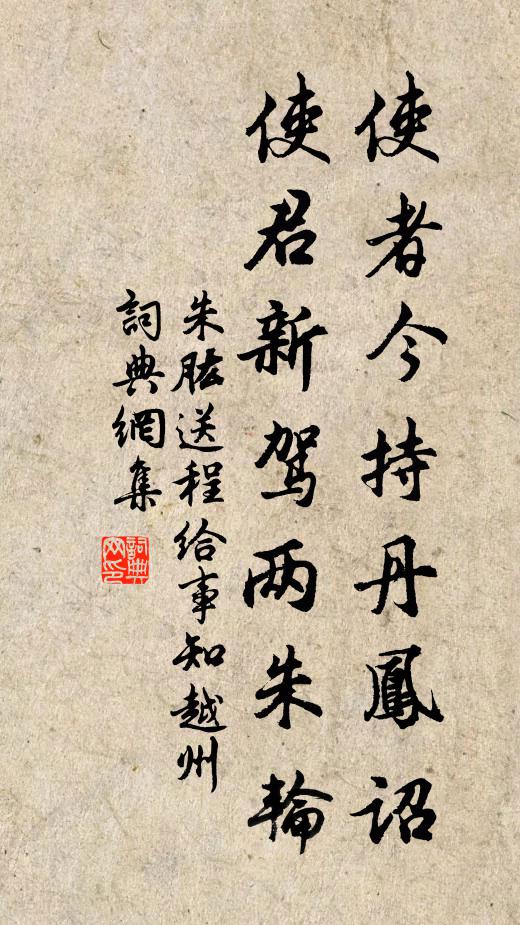 使者今持丹鳳詔
使君新駕两朱輪
朱肱送程给事知越州
詞典網集
詞典
网印